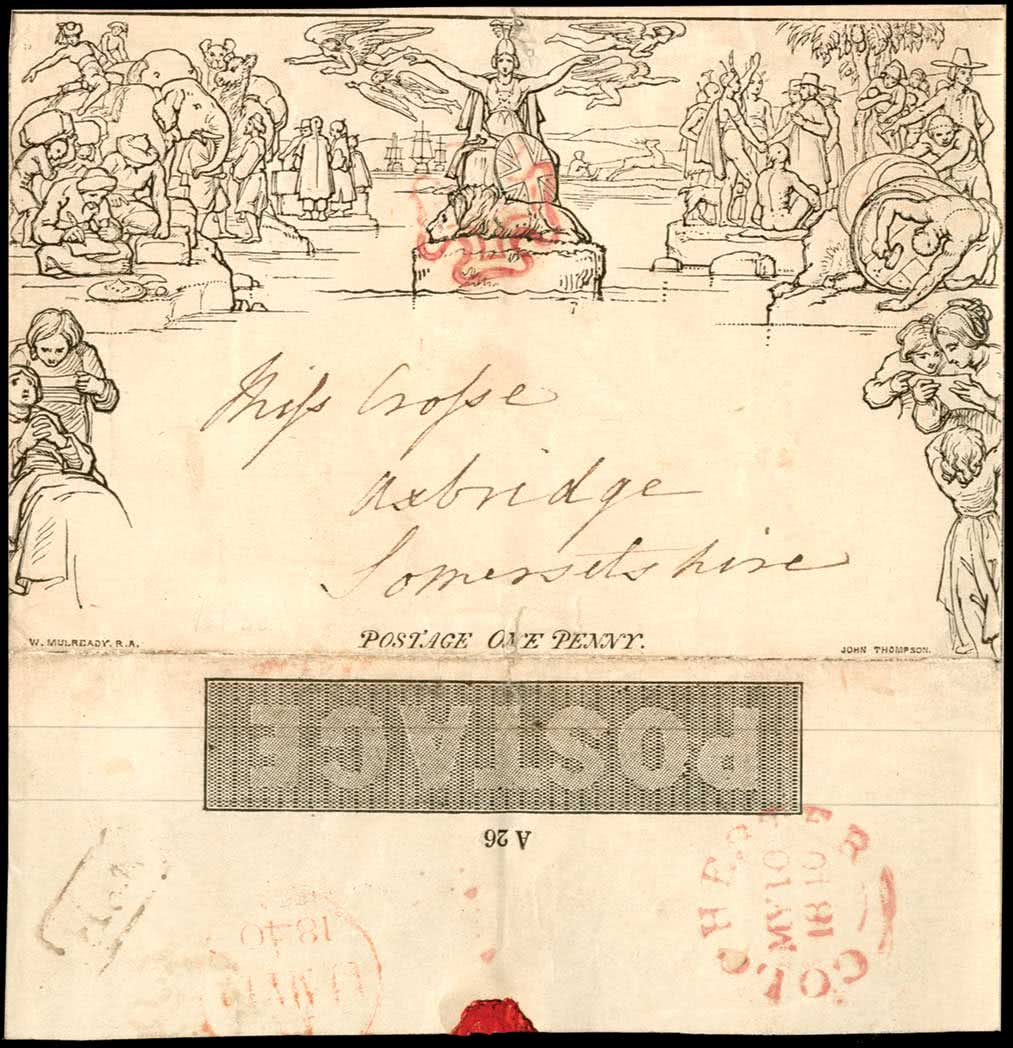 Miſs Croſse
Axbridge
Somersetshire
W. MULREADY. R.A.
POSTAGE ONE PENNY.
JOHN THOMPSON.
POSTAGE
A 26
COLCHESTER
MY 10
1840
1840